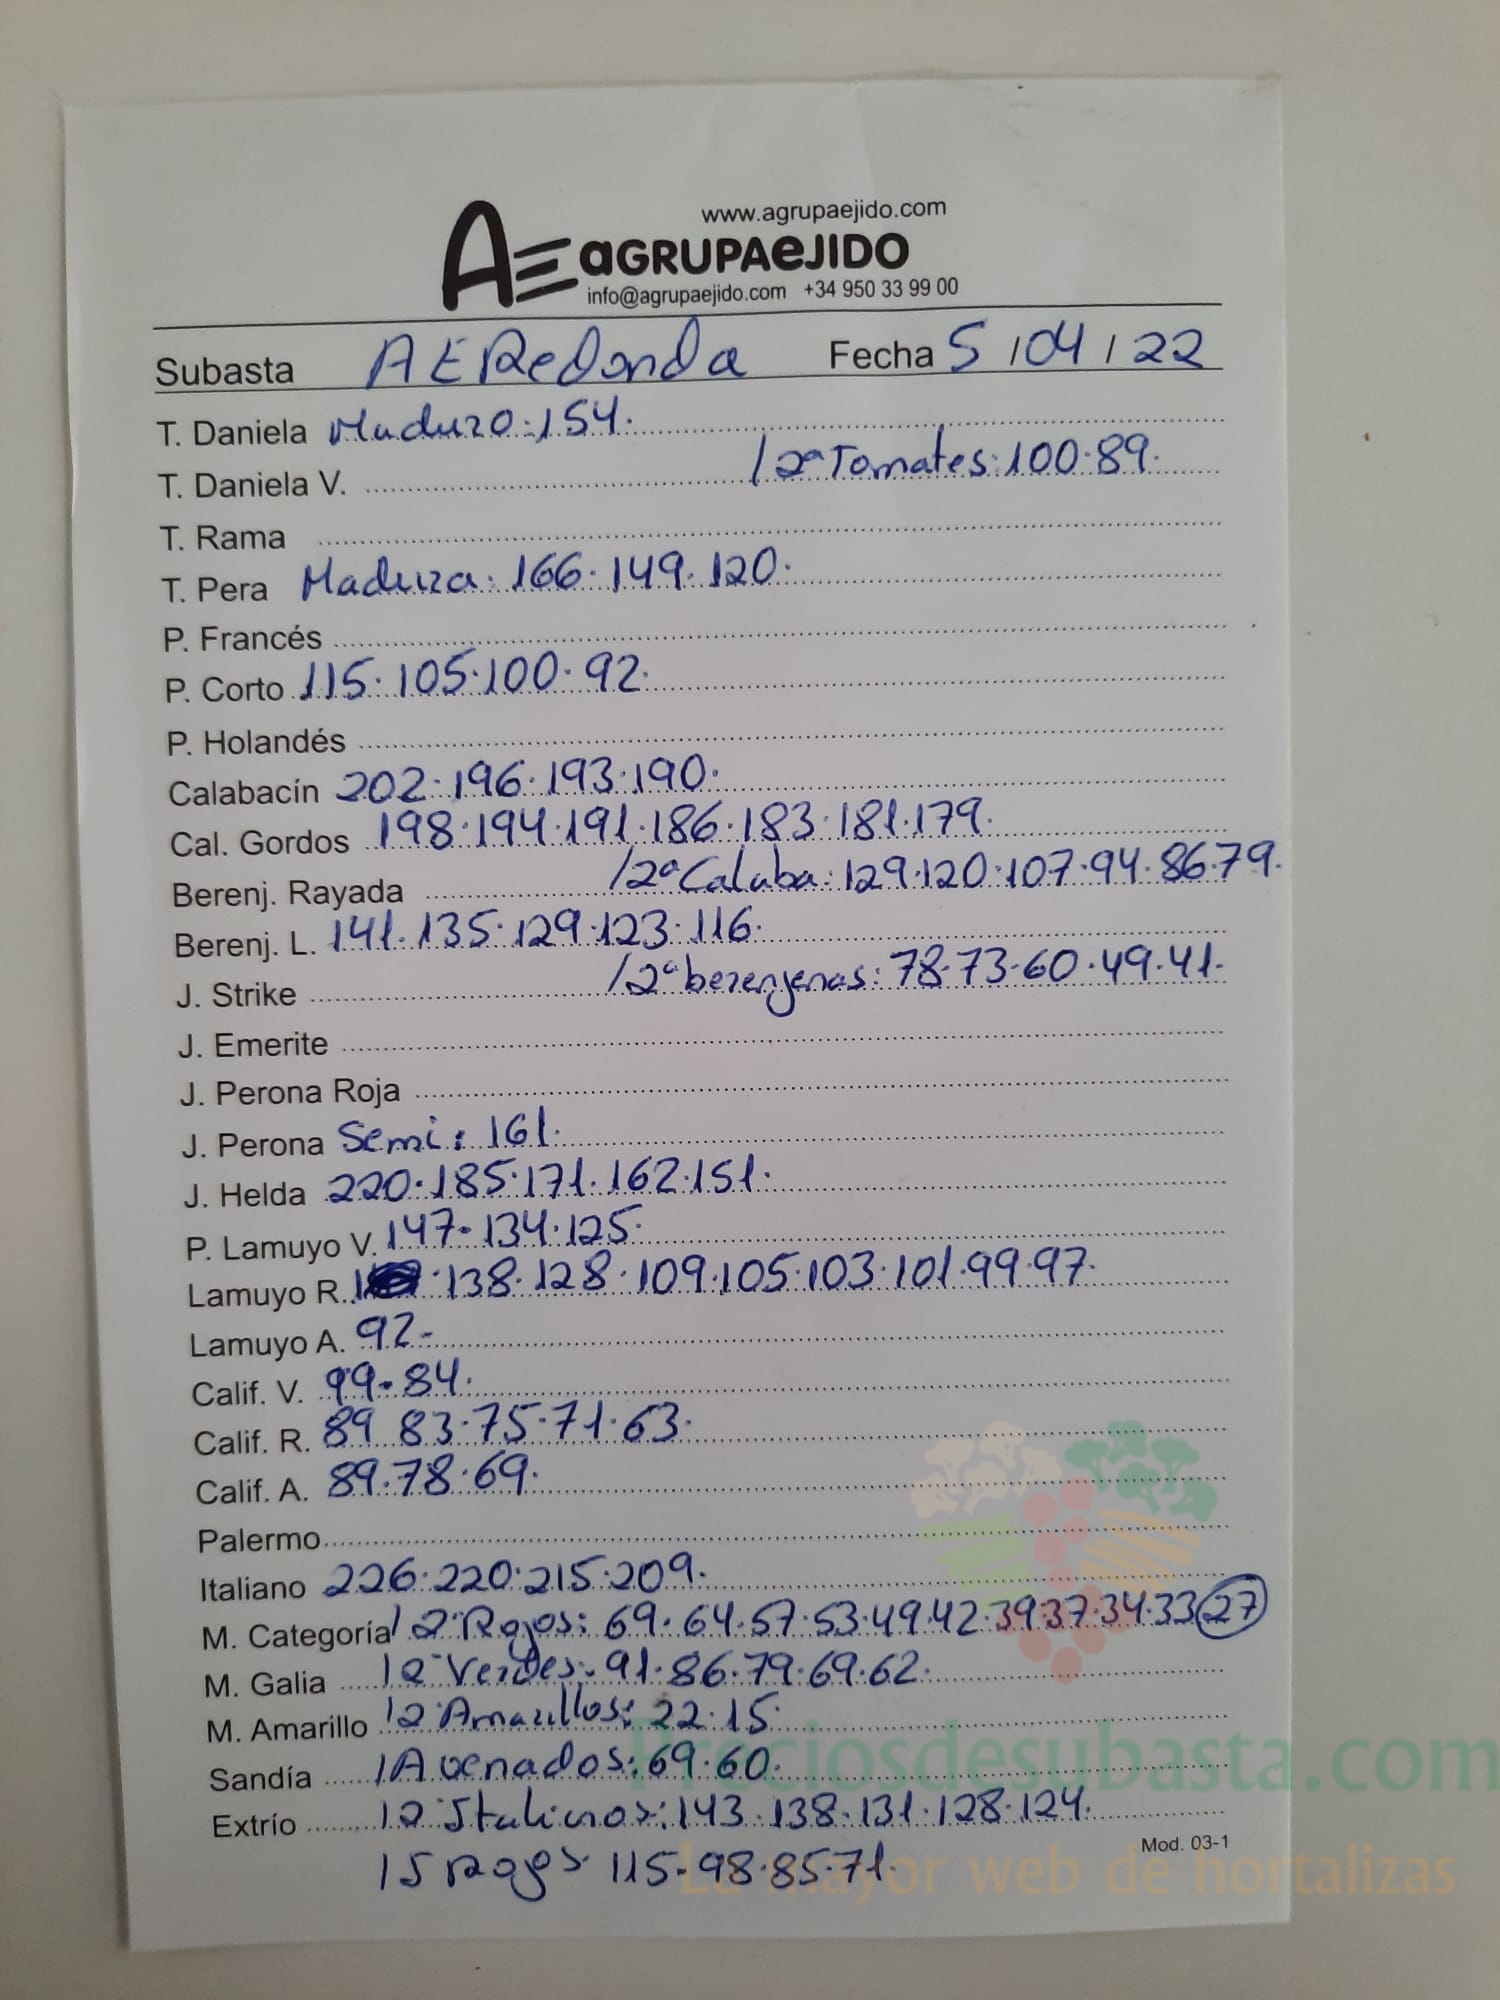 www.agrupaejido.com
AE aGRUPAeJIDO
info@agrupaejido.com +34 950 33 99 00
Subasta AERedonda Fecha 5/04/22
T. Daniela Maduro: 154.
T. Daniela V. /2ª Tomates: 100.89.
T. Rama
T. Pera Madura: 166.149.120.
P. Francés
P. Corto 115.105.100.92.
P. Holandés
Calabacín 202.196.193.190.
Cal. Gordos 198.194.191.186.183.181.179.
Berenj. Rayada /2ª Calaba: 129.120.107.94.86.79.
Berenj. L. 141.135.129.123.116.
J. Strike /2ª berenjenas: 78.73.60.49.41.
J. Emerite
J. Perona Roja
J. Perona Semi: 161.
J. Helda 220.185.171.162.151.
P. Lamuyo V. 147.134.125.
Lamuyo R. 138.128.109.105.103.101.99.97.
Lamuyo A. 92-
Calif. V. 99.84.
Calif. R. 89 83.75.71.63.
Calif. A. 89.78.69.
Palermo
Italiano 226.220.215.209.
M. Categoría /2ª Rojos: 69.64.57.53.49.42.39.37.34.33 27
M. Galia /2ª Verdes: 91.86.79.69.62.
M. Amarillo /2ª Amarillos: 22.15.
Sandía /Avenados: 69.60.
Preciosdesubasta.com
Extrío /2ª Italianos: 143.138.131.128.124.
Mod. 03-1
115.98.85.71.
La mayor web de hortalizas